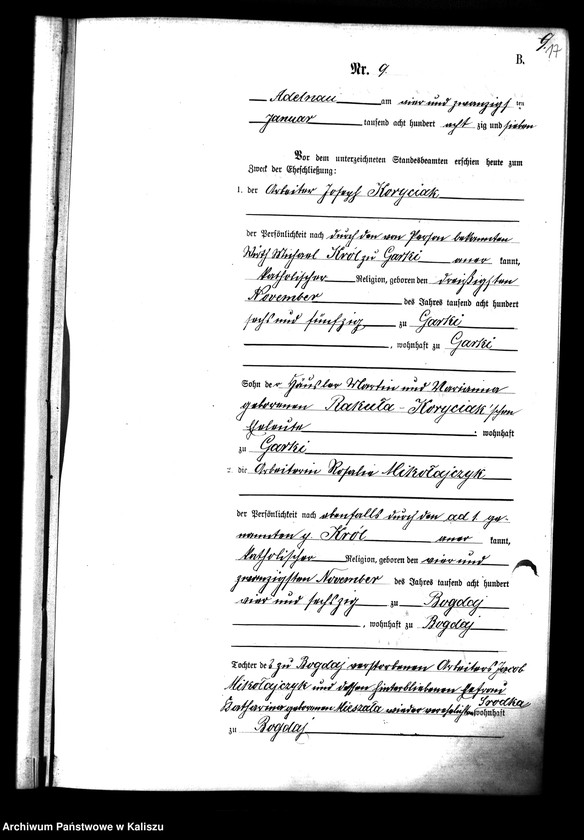 9.
17
B.
Nr. 9.
Adelnau am vier und zwanzigs ten
Januar tausend acht hundert acht zig und sieben
Vor dem unterzeichneten Standesbeamten erschien heute zum
Zweck der Eheschließung:
1. der Arbeiter Joseph Koryciak
der Persönlichkeit nach durch den von Person bekannten
Wirth Michael Król zu Garki aner kannt,
katholischer Religion, geboren den dreißigsten
November des Jahres tausend acht hundert
sechs und fünfzig zu Garki
, wohnhaft zu Garki
Sohn der Häusler Martin und Marianna
geborenen Rakuła - Koryciak'schen
Eheleute wohnhaft
zu Garki
2. die Arbeiterin Rosalie Mikołajczyk
der Persönlichkeit nach ebenfalls durch den ad 1. ge-
nannten p. Król aner kannt,
katholischer Religion, geboren den vier und
zwanzigsten November des Jahres tausend acht hundert
vier und sechszig zu Bogdaj
, wohnhaft zu Bogdaj
Tochter des zu Bogdaj verstorbenen Arbeiters Jacob
Mikołajczyk und dessen hinterbliebenen Ehefrau
Katharina geborenen Mieszała wieder verehelichten Srodka wohnhaft
zu Bogdaj
Archiwum Państwowe w Kaliszu